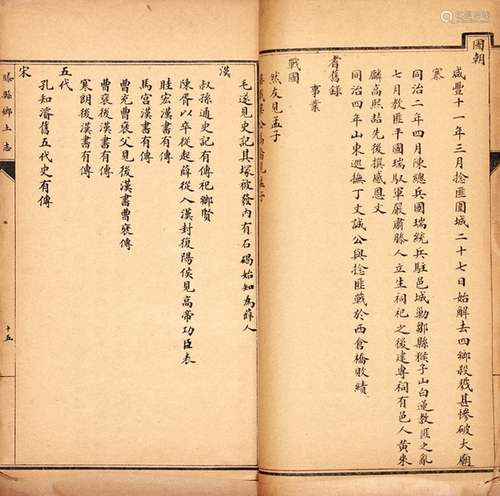 國朝
咸豐十一年三月捻匪圍城二十七日始解去四鄉殺戮甚慘破大廟
寨
同治二年四月陳總兵國瑞統兵駐邑城勦鄒縣猴子山白蓮教匪之亂
七月教匪平國瑞馭軍嚴肅滕人立生祠祀之後建專祠有邑人黃來
麟高熙喆先後撰感恩文
同治四年山東巡撫丁文誠公與捻匪戰於西倉橋敗績
耆舊錄
事業
戰國
然友見孟子
漢
毛遂見史記其塚被發內有石碣始知為薛人
叔孫通史記有傳祀鄉賢
陳胥以卒從起薛從入漢封復陽侯見高帝功臣表
眭宏漢書有傳
馬宮漢書有傳
曹充曹褒父見後漢書曹褒傳
曹褒後漢書有傳
寒朗後漢書有傳
五代
孔知濬舊五代史有傳
宋
滕縣鄉土志
十五